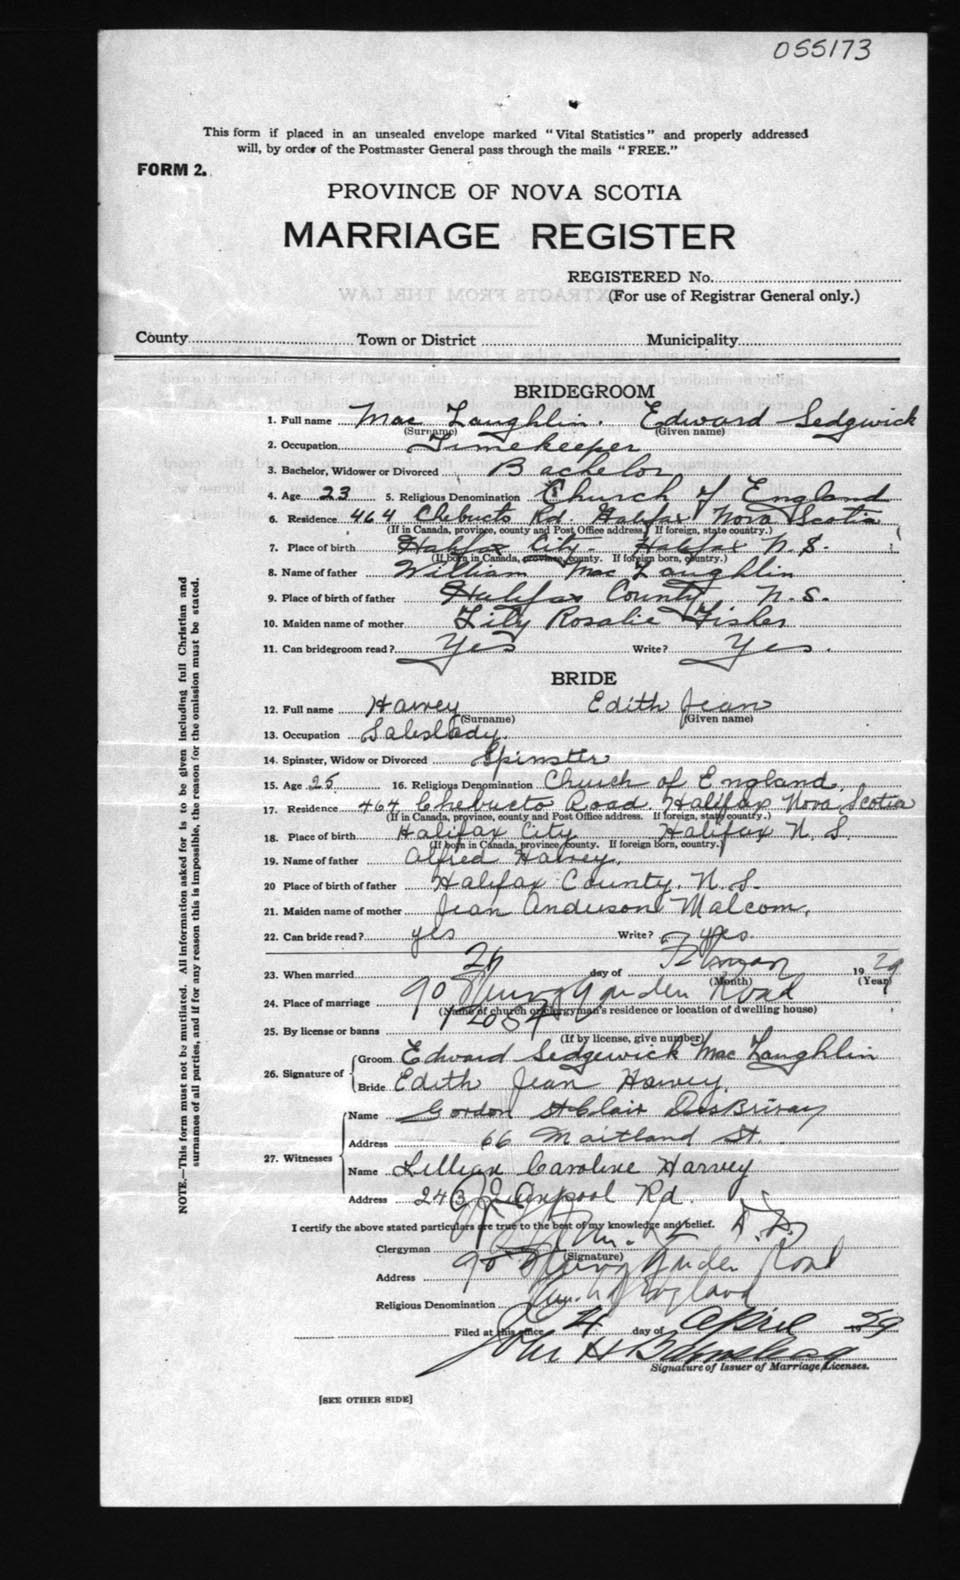 055173
This form if placed in an unsealed envelope marked "Vital Statistics" and properly addressed
will, by order of the Postmaster General pass through the mails "FREE."
FORM 2.
PROVINCE OF NOVA SCOTIA
MARRIAGE REGISTER
REGISTERED No.
(For use of Registrar General only.)
County Town or District Municipality
BRIDEGROOM
1. Full name Mac Laughlin. Edward Sedgwick
(Surname) (Given name)
2. Occupation Timekeeper
3. Bachelor, Widower or Divorced Bachelor
4. Age 23 5. Religious Denomination Church of England
6. Residence 464 Chebucto Rd Halifax Nova Scotia
(If in Canada, province, county and Post Office address. If foreign, state country.)
7. Place of birth Halifax City. Halifax N.S.
(If born in Canada, province, county. If foreign born, country.)
8. Name of father William Mac Laughlin
9. Place of birth of father Halifax County N.S.
10. Maiden name of mother Lily Rosalie Fisher
11. Can bridegroom read? Yes Write? Yes.
BRIDE
12. Full name Harvey Edith Jean
(Surname) (Given name)
13. Occupation Saleslady.
14. Spinster, Widow or Divorced Spinster
15. Age 25 16. Religious Denomination Church of England.
17. Residence 464 Chebucto Road. Halifax Nova Scotia
(If in Canada, province, county and Post Office address. If foreign, state country.)
18. Place of birth Halifax City Halifax N.S.
(If born in Canada, province county. If foreign born, country.)
19. Name of father Alfred Harvey.
20 Place of birth of father Halifax County. N.S.
21. Maiden name of mother Jean Anderson Malcom.
22. Can bride read? yes Write? yes.
23. When married 26 day of 19 29
(Month) (Year)
24. Place of marriage 90 Road
(Name of church or clergyman's residence or location of dwelling house)
25. By license or banns
(If by license, give number)
26. Signature of Groom Edward Sedgewick Mac Laughlin
Bride Edith Jean Harvey.
27. Witnesses
Name Gordon St Clair DesBrisay
Address 66 Maitland St.
Name Lillian Caroline Harvey
Address 243 Rd.
I certify the above stated particulars are true to the best of my knowledge and belief.
Clergyman
(Signature)
Address 90 Road
Religious Denomination England
Filed at this office 4 day of April 1929
John H
Signature of Issuer of Marriage Licenses.
[SEE OTHER SIDE]
NOTE.—This form must not be mutilated. All information asked for is to be given including full Christian and
surnames of all parties, and if for any reason this is impossible, the reason for the omission must be stated.